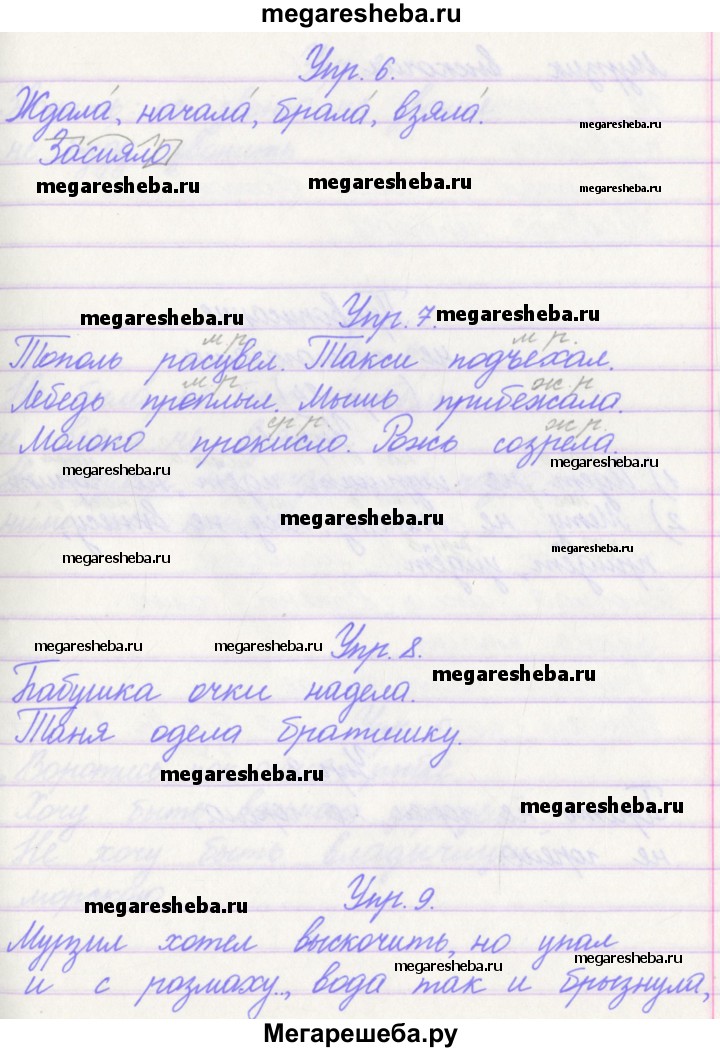 megaresheba.ru
Упр. 6.
Ждала́, начала́, брала́, взяла́.
megaresheba.ru
Засияло
megaresheba.ru
megaresheba.ru
megaresheba.ru
megaresheba.ru
Упр. 7.
м р. м р.
Тополь расцвел. Такси подъехал.
м р. ж р
Лебедь проплыл. Мышь прибежала.
ср р. ж р.
Молоко прокисло. Рожь созрела.
megaresheba.ru
megaresheba.ru
megaresheba.ru
megaresheba.ru
megaresheba.ru
Упр. 8.
megaresheba.ru
megaresheba.ru
megaresheba.ru
Бабушка очки надела.
Таня одела братишку.
megaresheba.ru
megaresheba.ru
Упр. 9.
megaresheba.ru
Мурзил хотел выскочить, но упал
megaresheba.ru
megaresheba.ru
и с розмаху.., вода так и брызнула,
Мегарешеба.ру